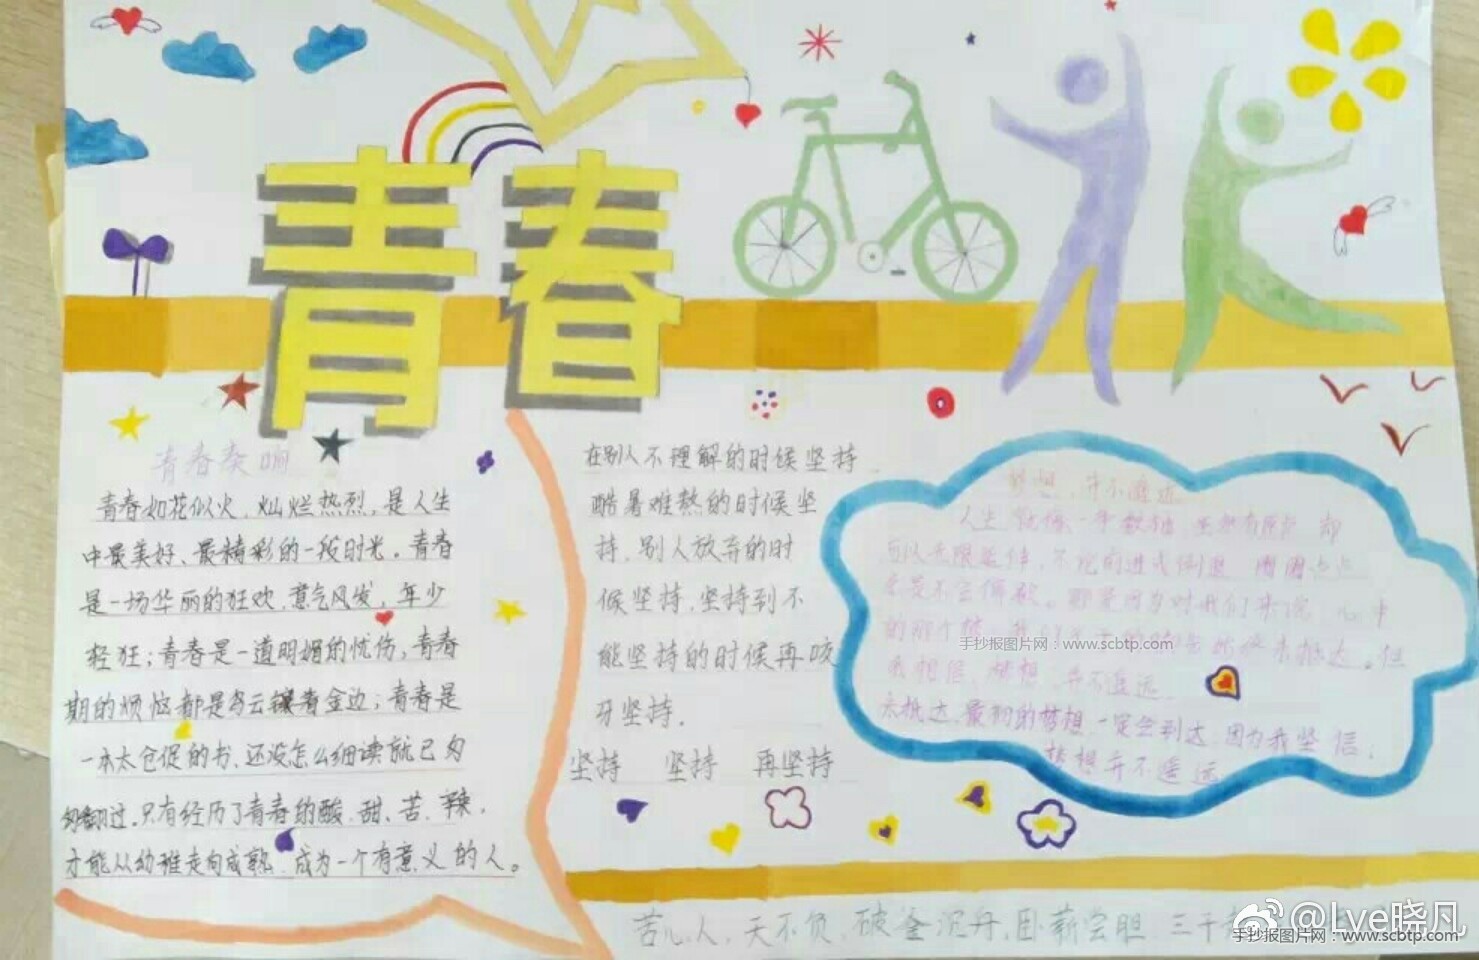 青春
青春奏响
青春如花似火，灿烂热烈，是人生
中最美好、最精彩的一段时光。青春
是一场华丽的狂欢，意气风发，年少
轻狂；青春是一道明媚的忧伤，青春
期的烦恼都是乌云镶着金边；青春是
一本太仓促的书，还没怎么细读就已匆
匆翻过。只有经历了青春的酸、甜、苦、辣，
才能从幼稚走向成熟，成为一个有意义的人。
在别人不理解的时候坚持
酷暑难熬的时候坚
持，别人放弃的时
候坚持，坚持到不
能坚持的时候再咬
牙坚持。
坚持 坚持 再坚持
梦想，并不遥远
人生就像一年数轴，虽然有原点，却
可以无限延伸，不论前进或倒退
的那个梦
我相信，梦想，并不遥远。
未抵达，最初的梦想，一定会到达，因为我坚信：
梦想并不遥远
手抄报图片网：www.scbtp.com
苦心人，天不负，破釜沉舟，卧薪尝胆，三千
@Lve晓凡
手抄报图片网：www.scbtp.com